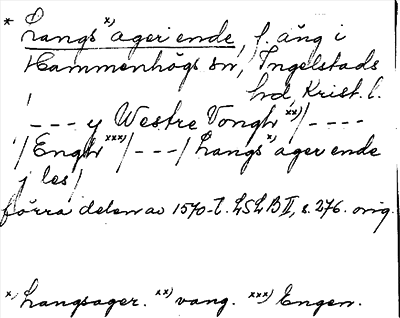 * Langs x) ager ende, f. äng i
Hammenhögs sn, Ingelstads
hd, Krist. l.
/ --- y Westre Vongh xx)/ ----
/ Engh xxx)/ --- / Langs x) ager ende
j les /
förra delen av 1570-t. LSLB II, s. 276. orig.
x) Langsager. xx) vang. xxx) Engen.